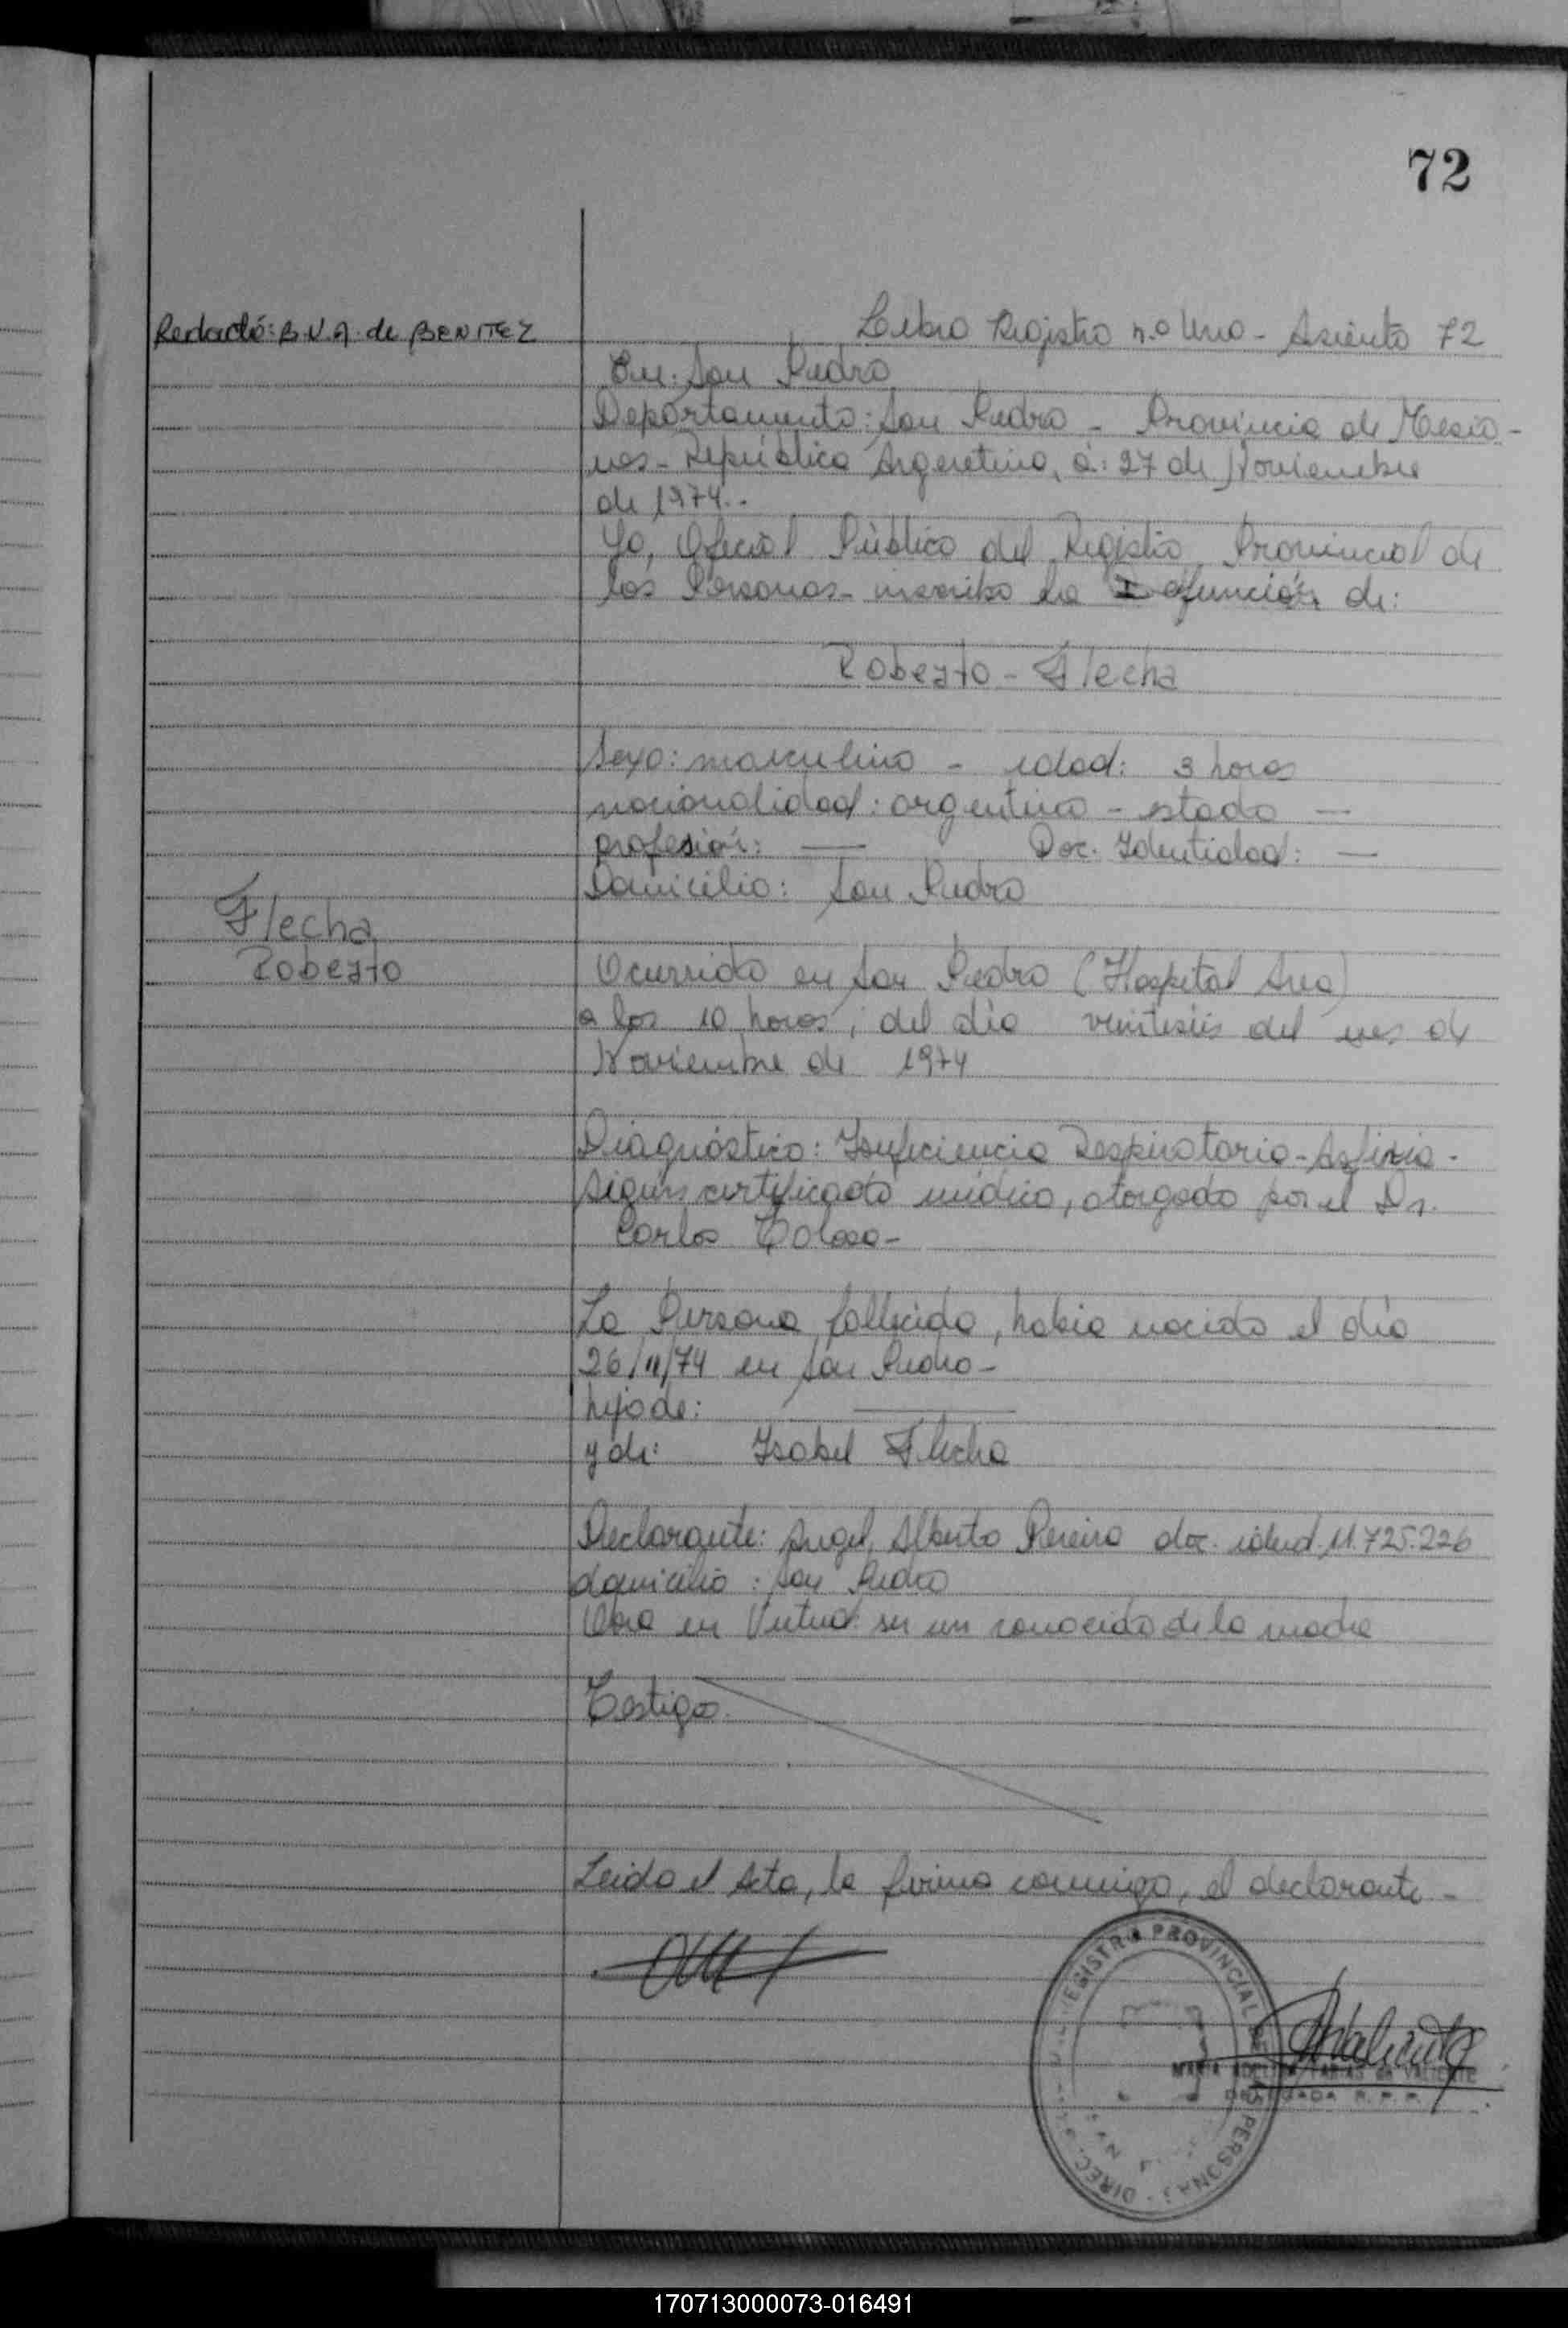 72
Redactó: B.V.A. de BENITEZ
Libro Registro n.o Uno - Asiento 72
En: San Pedro
Departamento: San Pedro - Provincia de Misio-
nes - República Argentina, a: 27 de Noviembre
de 1974.-
Yo, Oficial Público del Registro Provincial de
las Personas - inscribo la Defunción de:
Roberto - Flecha
Sexo: masculino - edad: 3 horas
nacionalidad: argentina - estado —
profesión: — Doc. Identidad: —
Domicilio: San Pedro
Flecha
Roberto
Ocurrido en San Pedro (Hospital Area)
a las 10 horas, del día veintiseis del mes de
Noviembre de 1974
Diagnóstico: Insuficiencia Respiratoria - Asfixia -
Según certificado médico, otorgado por el Dr.
Carlos
La Persona fallecida, había nacido el día
26/11/74 en San Pedro -
hijo de: —
y de: Isabel Flecha
Declarante: Angel Alberto Pereira doc. ident. 11.725.226
domicilio: San Pedro
Obra en Virtud: ser un conocido de la madre
Testigo.
Leida el Acta, la firma conmigo, el declarante -
REGISTRO PROVINCIAL DE LAS PERSONAS - DIREC.
MARIA ADELINA FARIAS de VALIENTE
DELEGADA R.P.P.
170713000073-016491